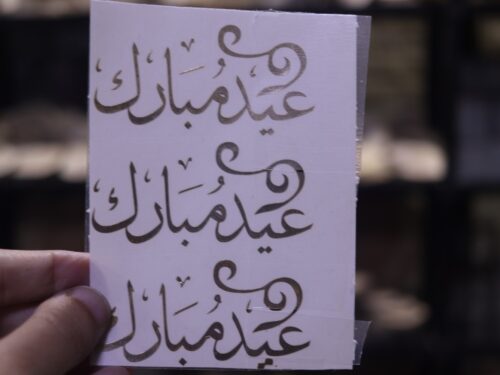 عيد مُبارَك
عيد مُبارَك
عيد مُبارَك